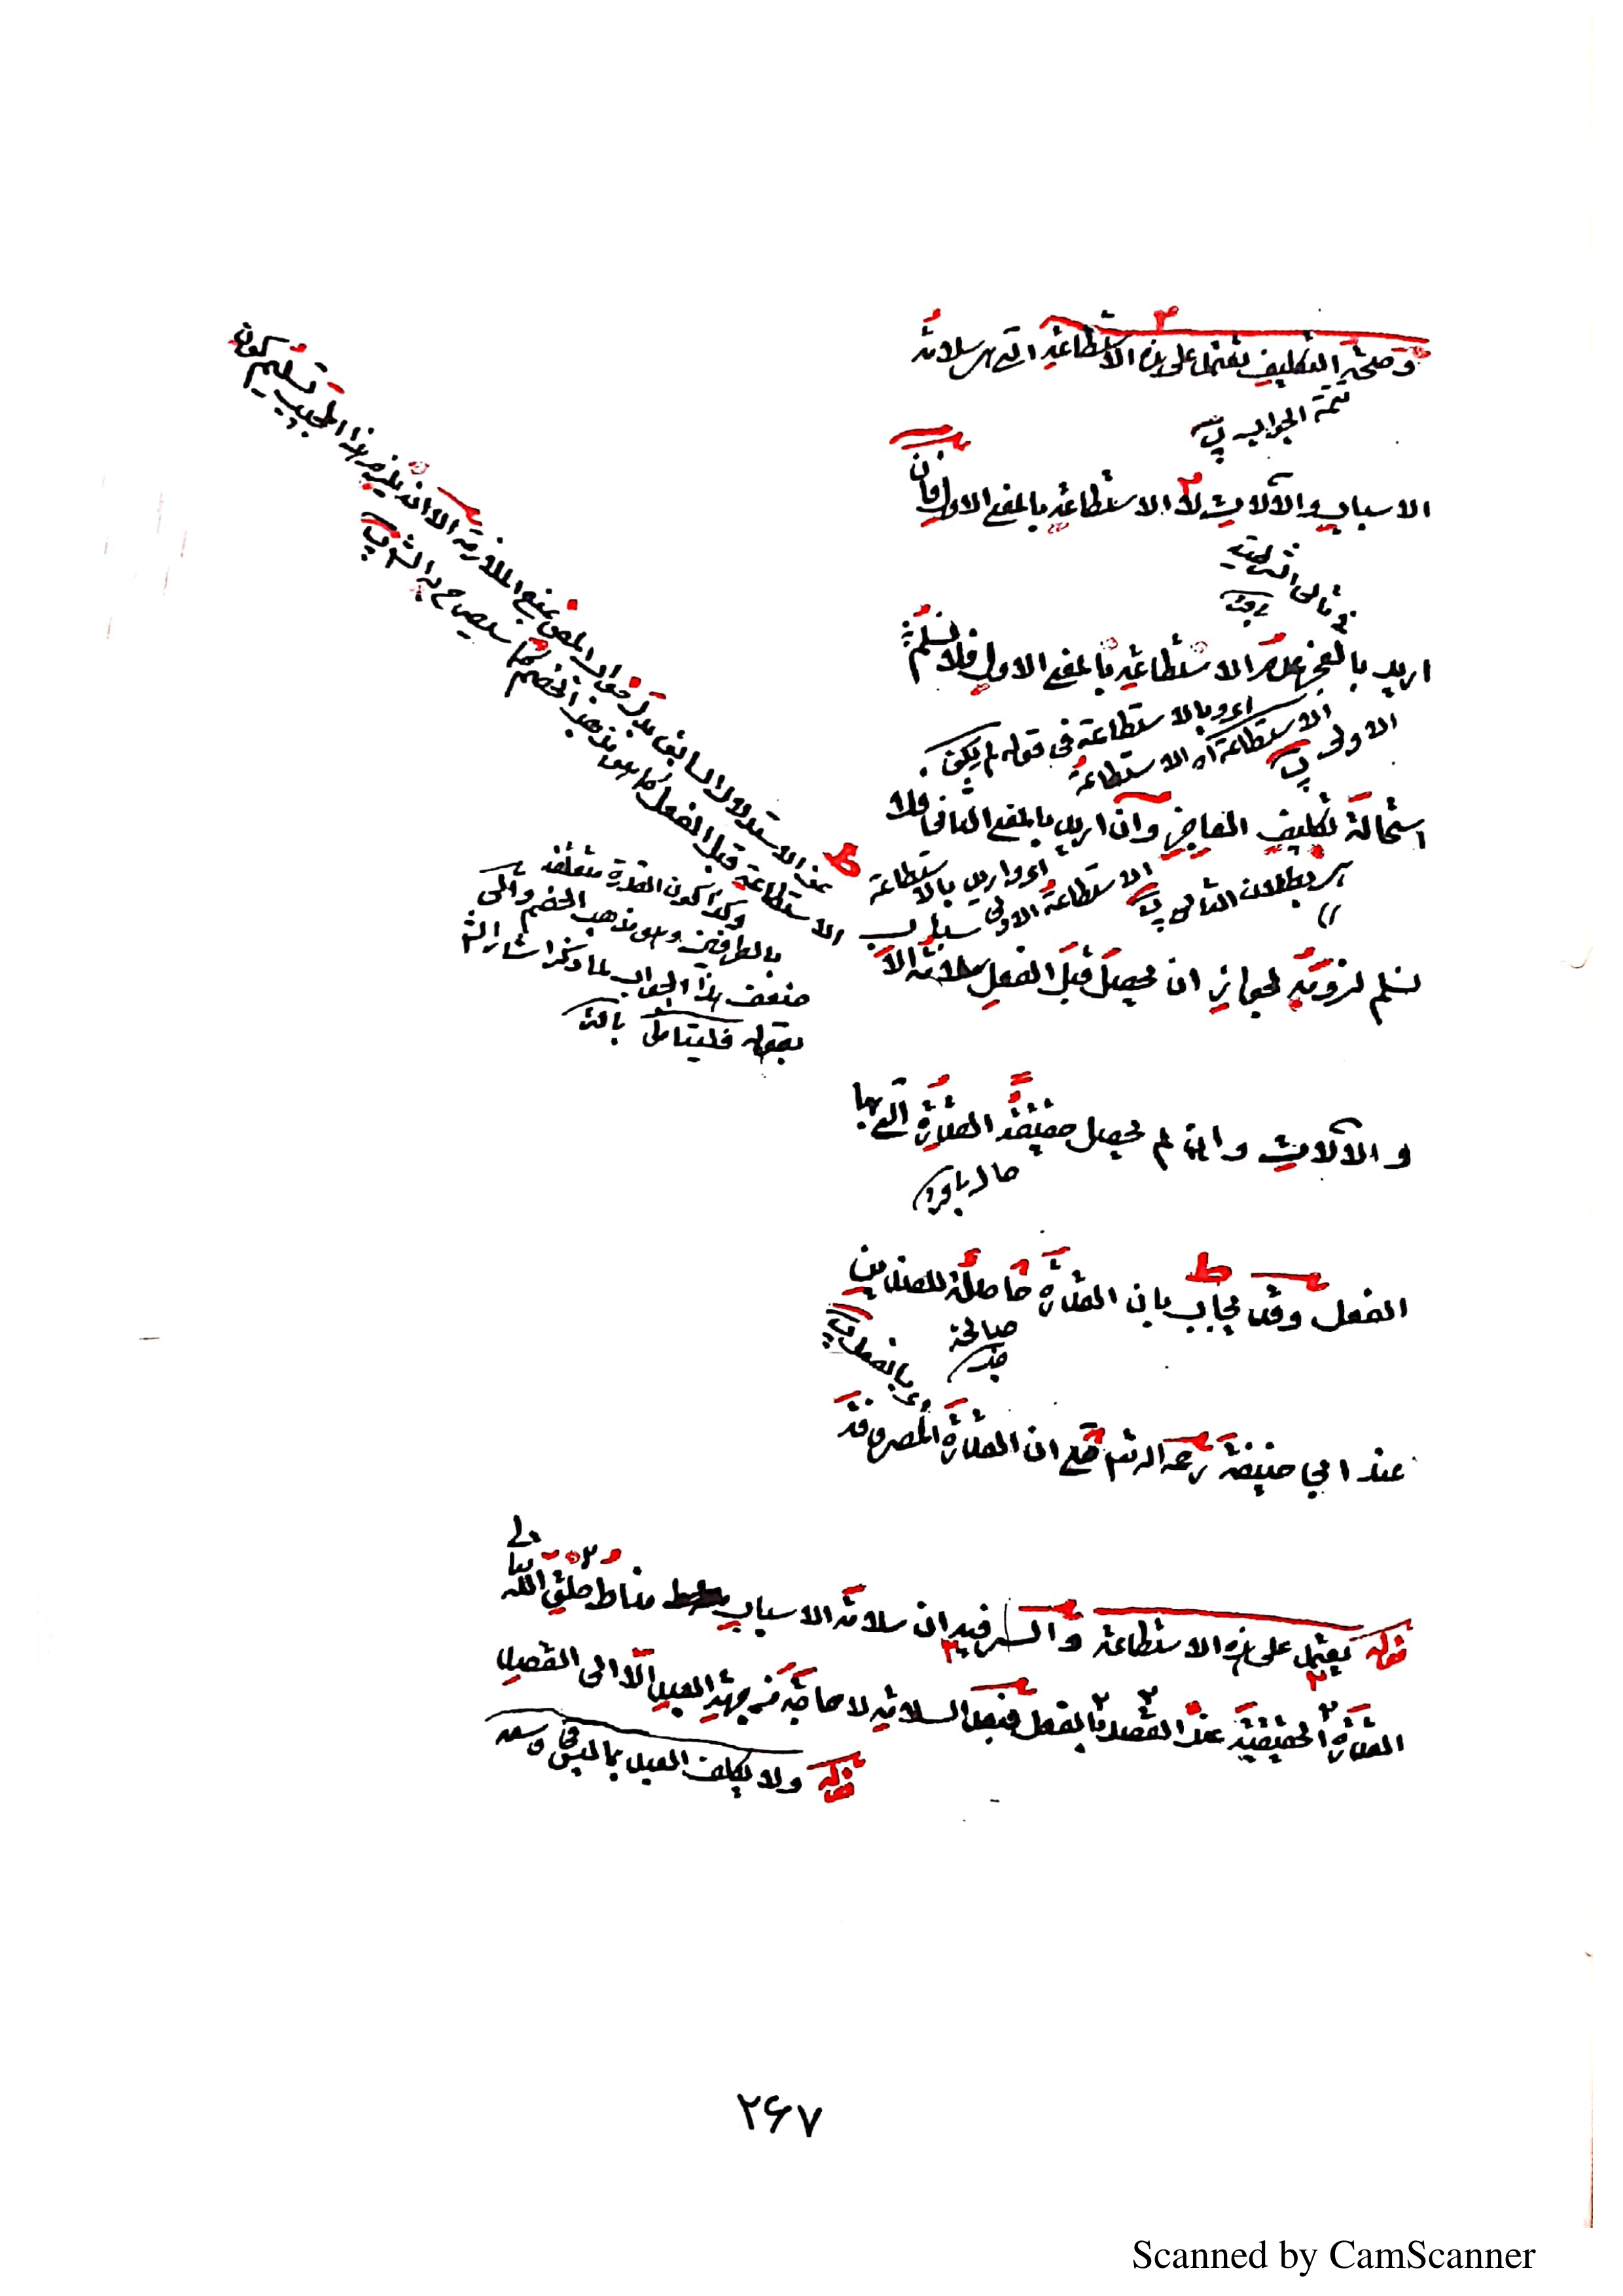 وصحة التكليف تعتمد على هذه الاستطاعة التي هي سلامة
تتمة الجواب
الاسباب والآلات لا الاستطاعة بالمعنى الاول فان
اريد بالعجز عدم الاستطاعة بالمعنى الاول فلا نسلم
اي وبالاستطاعة في قوله لم يكن
الاستطاعة اه الاستطاعة
الاولى
استحالة تكليف العاجز وان اريد بالمعنى الثاني فلا
اي واريد بالاستطاعة
اي بطلان التالي
الاستطاعة الاولى
نسلم لزومه لجواز ان يحصل قبل الفعل سلامة الا
سباب
والآلات وان لم يحصل حقيقة القدرة التي بها
الفعل وقد يجاب بان القدرة حاصلة للضدين
صالحة
اي بالفعل
عند ابي حنيفة رحمه الله حتى ان القدرة المصروفة
عن الاستدلال السابق
بمنع الملازمة الا انه يلزم هذا المجيب تسليم كون
الاستطاعة قبل الفعل كما هو مذهب الخصم كما سيصرح به الش
وكذا كون القدرة متعلقة
بالطرفين وهو مذهب الخصم
ضعف هذا الجواب لما ذكر اشار الش
بقوله فليتأمل
قوله يعتمد على هذه الاستطاعة والسر فيه ان سلامة الاسباب مناط خلق الله تعالى
القدرة الحقيقية عند القصد بالفعل فبعد السلامة لا حاجة من جهة العبد الا الى القصد
قوله ولا يكلف العبد بما ليس في وسعه
٢٦٧
Scanned by CamScanner